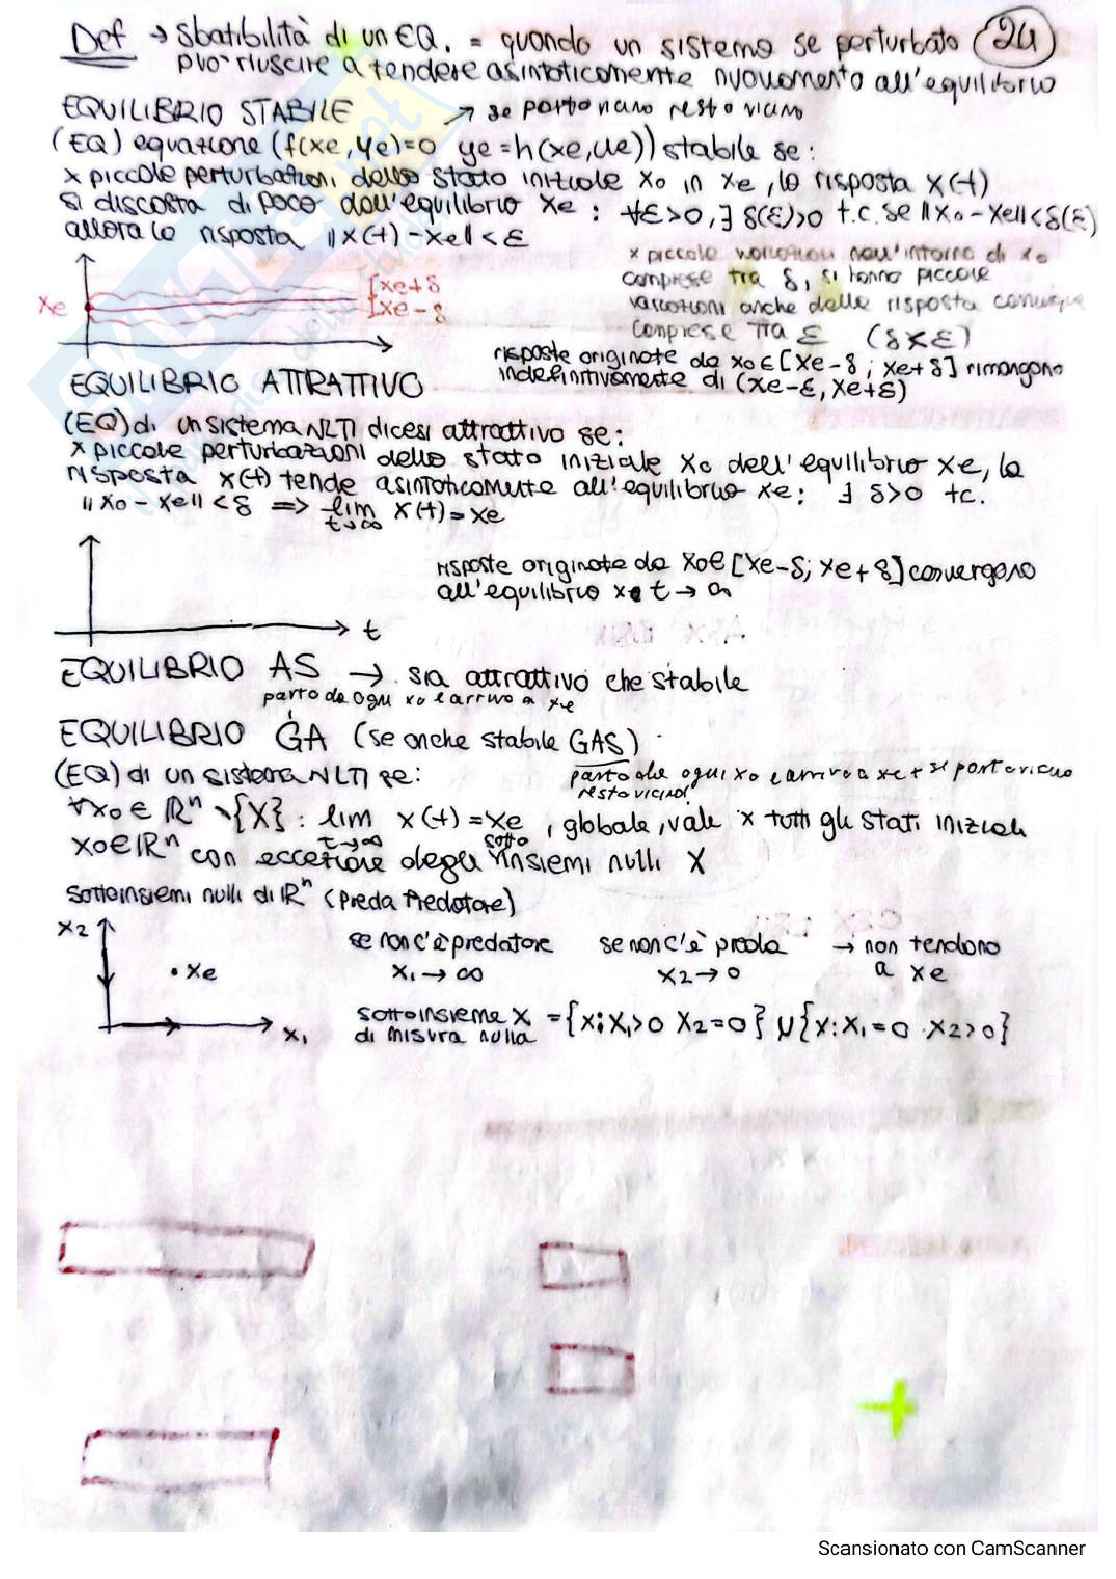 Def → Sbatibilità di un EQ. = quando un sistema se perturbato (24)
può riuscire a tendere asintoticamente nuovamente all'equilibrio
EQUILIBRIO STABILE ↗ se parto vicino resto vicino
(EQ) equazione (f(xe, ye)=0 ye=h(xe,ue)) stabile se:
x piccole perturbazioni dello stato iniziale xo in xe, la risposta x(t)
si discosta di poco dall'equilibrio xe : ∀ε>0, ∃ δ(ε)>0 t.c. se ||xo-xe||<δ(ε)
allora la risposta ||x(t)-xe||<ε
x piccole variazioni nell'intorno di xo
comprese tra δ, si hanno piccole
variazioni anche della risposta comunque
comprese tra ε (δ<ε)
xe
[xe+δ
[xe-δ
risposte originate da xo∈[xe-δ ; xe+δ] rimangono
indefinitivamente di (xe-ε, xe+ε)
EQUILIBRIO ATTRATTIVO
(EQ) di un sistema NLTI dicesi attrattivo se:
x piccole perturbazioni dello stato iniziale xo dell'equilibrio xe, la
risposta x(t) tende asintoticamente all'equilibrio xe: ∃ δ>0 tc.
||xo-xe||<δ => lim t→∞ x(t)=xe
risposte originate da xo∈[xe-δ; xe+δ] convergono
all'equilibrio xe t→∞
t
EQUILIBRIO AS → sia attrattivo che stabile
parto da ogni xo e arrivo a xe
EQUILIBRIO GA (se anche stabile GAS)
(EQ) di un sistema NLTI se:
parto da ogni xo e arrivo a xe + se parto vicino
resto vicino
∀xo∈ℝⁿ\{X} : lim t→∞ x(t)=xe, globale, vale x tutti gli stati iniziali
xo∈ℝⁿ con eccezione degli sottoinsiemi nulli X
sottoinsiemi nulli di ℝⁿ (Preda Predatore)
x2
• xe
x1
se non c'è predatore se non c'è preda → non tendono
x1→∞ x2→0 a xe
sottoinsieme X = {x: x1>0 x2=0} ∪ {x: x1=0 x2>0}
di misura nulla
Scansionato con CamScanner